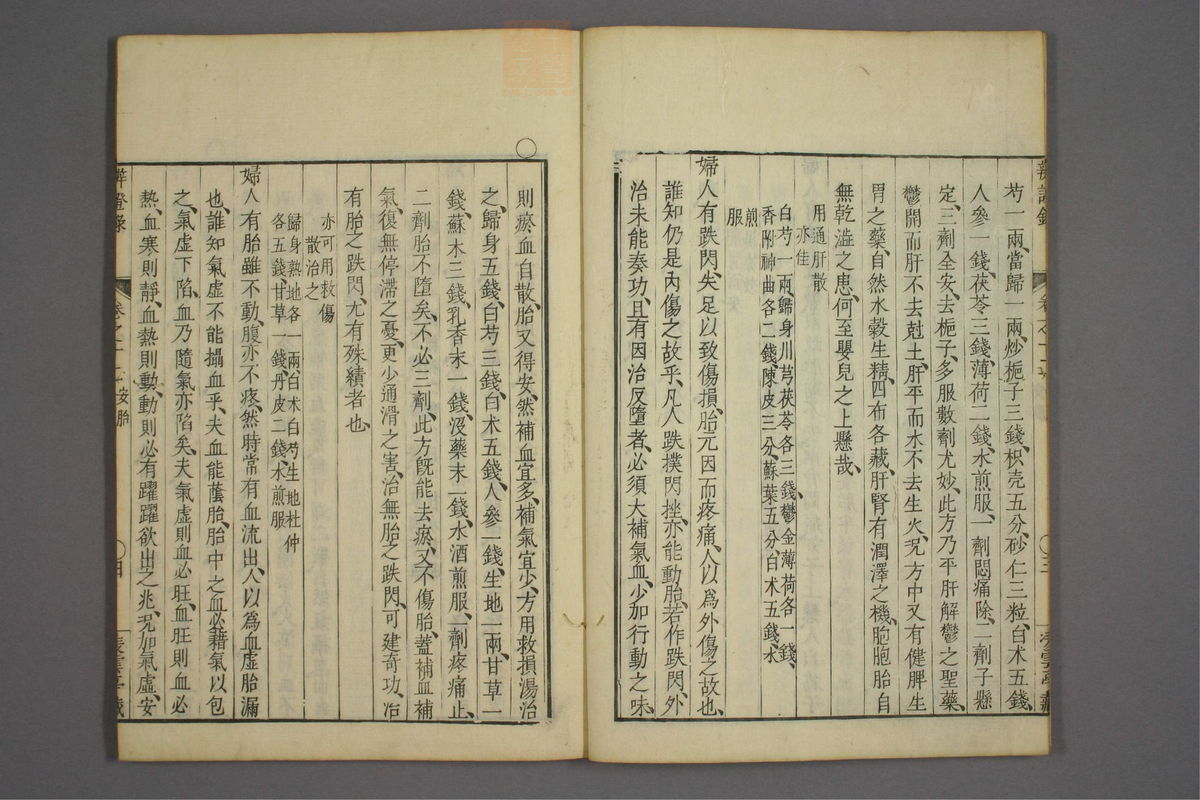 芍一兩、當歸一兩、炒梔子三錢、枳壳五分、砂仁三粒、白术五錢、
人參一錢、茯苓三錢、薄荷二錢、水煎服、一劑悶痛除、二劑子懸
定、三劑全安、去梔子、多服數劑尤妙、此方乃平肝解鬱之聖藥、
鬱開而肝不去尅土、肝平而木不去生火、况方中又有健脾生
胃之藥、自然水穀生精、四布各藏、肝腎有潤澤之機、胞胞胎自
無乾澁之患、何至嬰兒之上懸哉、
用通肝散
亦佳
白芍一兩、歸身川芎茯苓各三錢、鬱金薄荷各一錢、
香附神曲各二錢、陳皮三分、蘇葉五分、白术五錢、水
煎
服
婦人有跌閃失足以致傷損、胎元因而疼痛、人以爲外傷之故也、
誰知仍是內傷之故乎、凡人跌撲閃挫、亦能動胎、若作跌閃外
治未能奏功、且有因治反墮者、必須大補氣血、少加行動之味、
則瘀血自散、胎又得安、然補血宜多、補氣宜少、方用救損湯治
之、歸身五錢、白芍三錢、白术五錢、人參一錢、生地一兩、甘草一
錢、蘇木三錢、乳香末一錢、沒藥末一錢、水酒煎服、一劑疼痛止、
二劑胎不墮矣、不必三劑、此方旣能去瘀、又不傷胎、蓋補血補
氣、復無停滯之憂、更少通滑之害、治無胎之跌閃、可建奇功、治
有胎之跌閃、尤有殊績者也、
亦可用救傷
散治之
歸身熟地各一兩、白术白芍生地杜仲
各五錢、甘草一錢、丹皮二錢、水煎服
婦人有胎雖不動、腹亦不疼、然時常有血流出、人以爲血虛胎漏
也、誰知氣虛不能攝血乎、夫血能蔭胎、胎中之血、必藉氣以包
之、氣虛下陷、血乃隨氣亦陷矣、夫氣虛則血必旺、血旺則血必
熱、血寒則靜、血熱則動、動則必有躍躍欲出之兆、况加氣虛、安
辨證錄
安胎